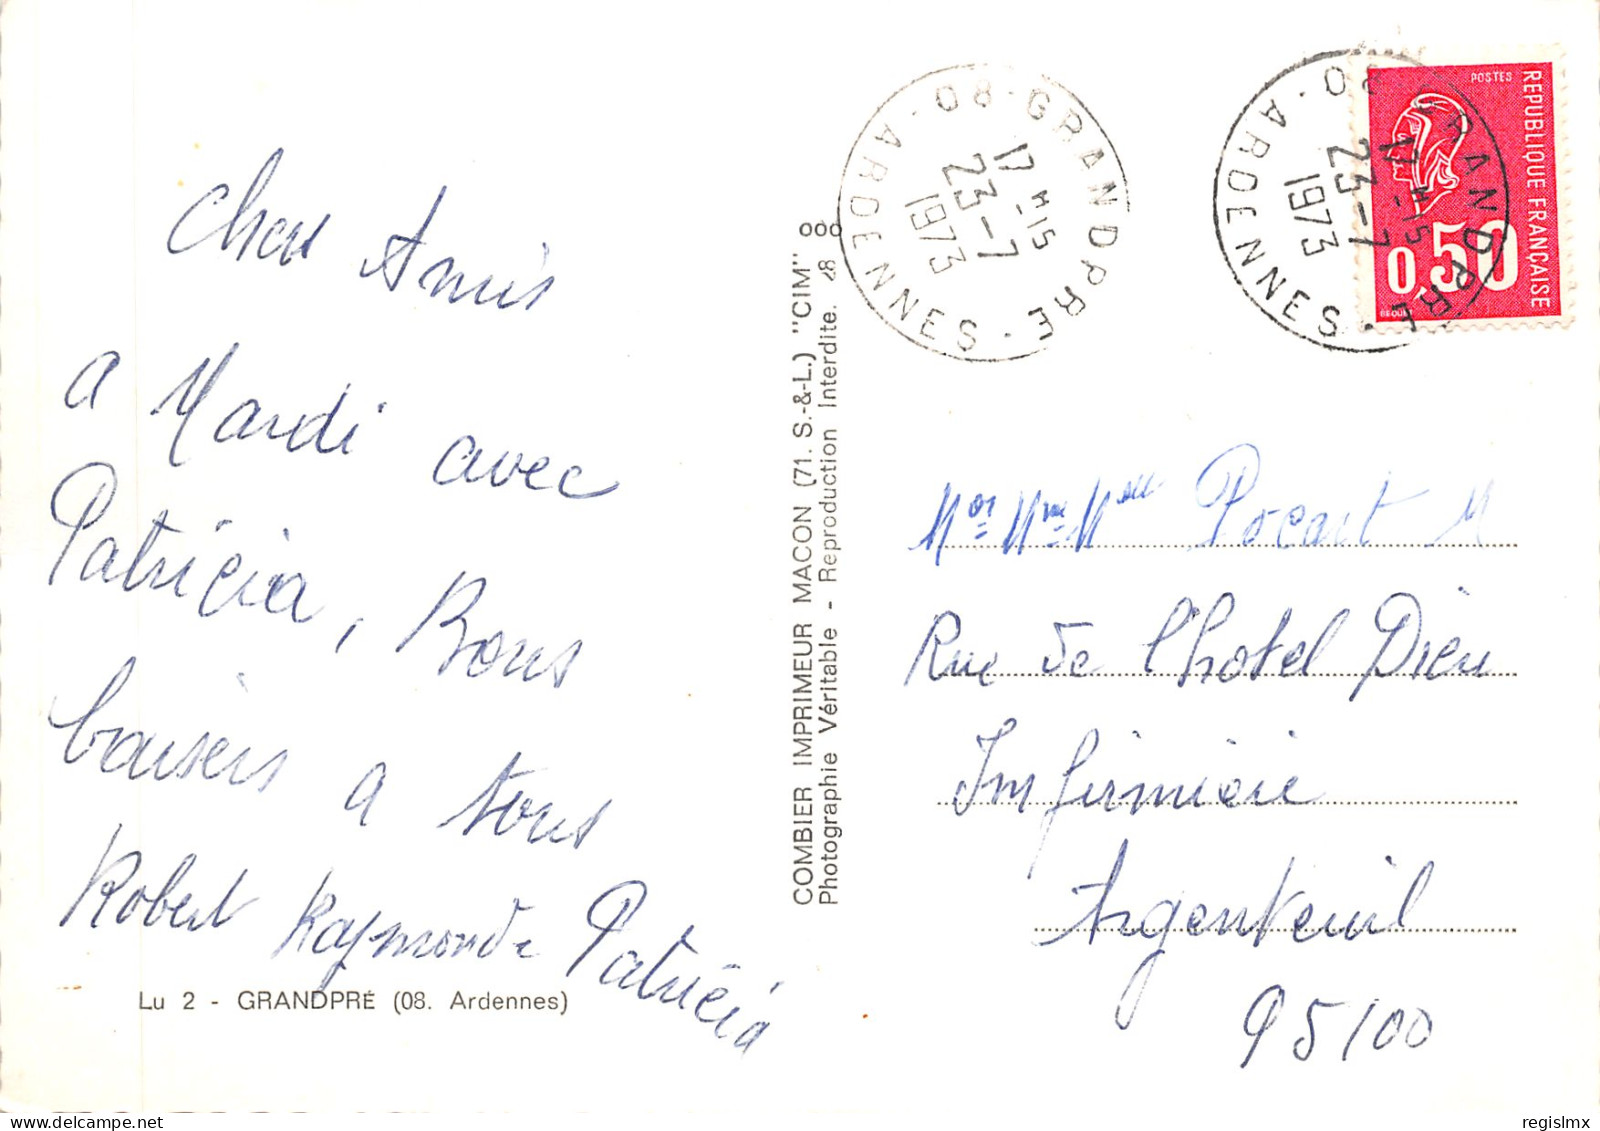 Cher Amis
a Mardi avec
Patricia, Bons
baisers a tous
Robert Raymonde Patricia
Lu 2 - GRANDPRÉ (08. Ardennes)
COMBIER IMPRIMEUR MACON (71. S.-&-L.) "CIM"
Photographie Véritable - Reproduction Interdite.
08 - GRANDPRE - ARDENNES
17H15
23-7
1973
08 - GRANDPRE - ARDENNES
17H15
23-7
1973
POSTES
REPUBLIQUE FRANÇAISE
0,50
BEQUET
Mme Pocart M
Rue de l'hotel Dieu
Infirmiere
Argenteuil
95100
regislmx